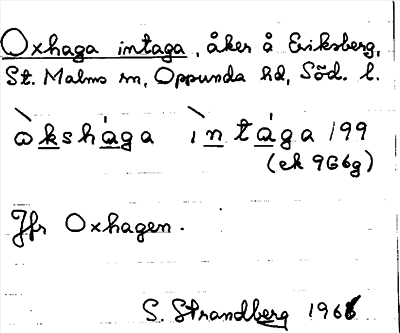 Oxhaga intaga, åker å Eriksberg,
St. Malms sn, Oppunda hd, Söd. l.
ò̀kshá̱ga ìntá̱ga 199
(ek 9G6g)
Jfr Oxhagen.
S. Strandberg 1966